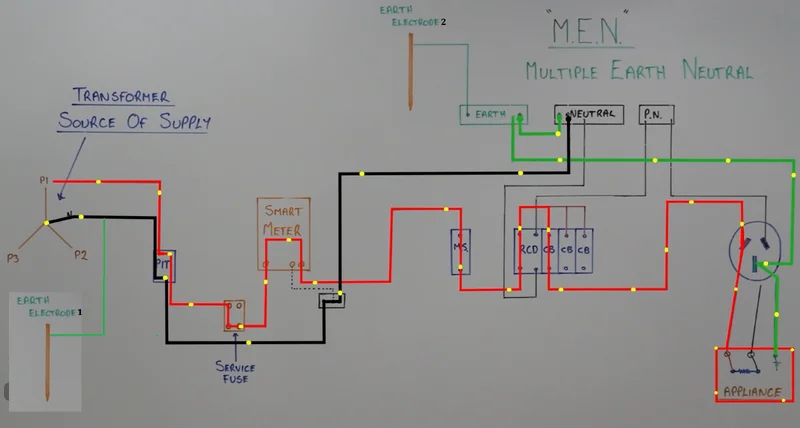 EARTH
ELECTRODE 2
"M.E.N."
MULTIPLE EARTH NEUTRAL
TRANSFORMER
SOURCE OF SUPPLY
EARTH
NEUTRAL
P.N.
P1
N
P3
P2
PIT
SMART
METER
M.S.
RCD
CB
CB
CB
EARTH
ELECTRODE 1
SERVICE
FUSE
APPLIANCE